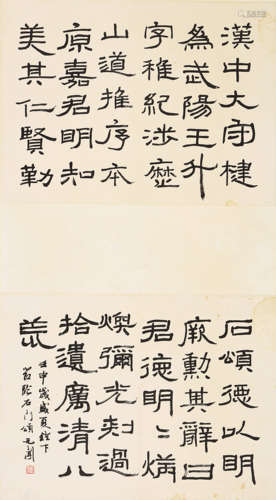 漢中大守楗
為武陽王升
字稚紀涉歷
山道推序本
原嘉君明知
美其仁賢勒
石頌德以明
厥勳其辭曰
君德明〻炳
煥彌光刺過
拾遺厲清八
荒
壬申歲盛夏燈下
臨石门頌